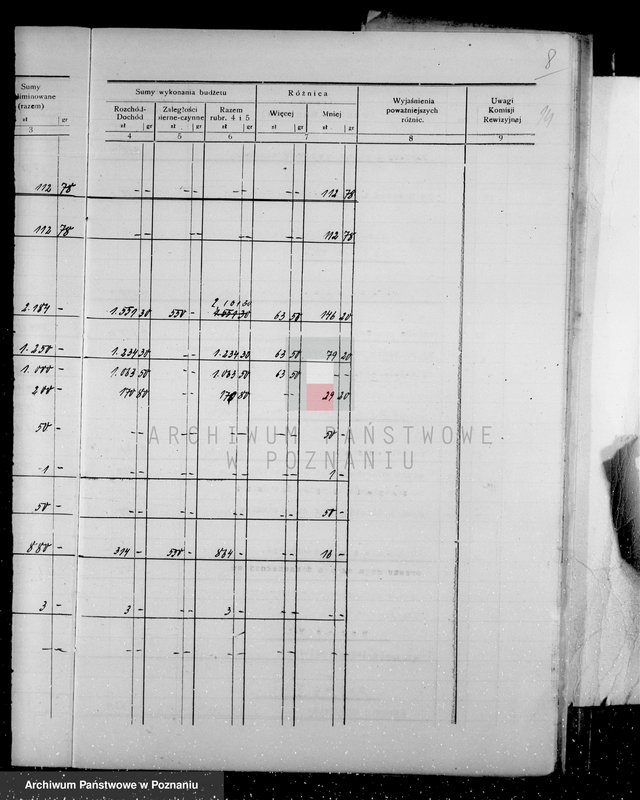 8
Sumy
liminowane
(razem)
zł gr
3
Sumy wykonania budżetu
Rozchód-
Dochód
zł gr
4
Zaległości
bierne-czynne
zł gr
5
Razem
rubr. 4 i 5
zł gr
6
Różnica
Więcej
zł gr
Mniej
zł gr
7
Wyjaśnienia
poważniejszych
różnic.
8
Uwagi
Komisji
Rewizyjnej
9
112 78 - - - - - - - - 112 78
112 78 - - - - - - - - 112 78
2.101 30
2.184 - 1.551 30 550 - 2.051 30 63 50 146 20
1.250 - 1.234 30 - - 1.234 30 63 50 79 20
1.000 - 1.063 50 - - 1.063 50 63 50 - -
200 - 170 80 - - 170 80 - - 29 20
50 - - - - - - - - - 50 -
1 - - - - - - - - - 1 -
50 - - - - - - - - - 50 -
880 - 314 - 550 - 864 - - - 16 -
3 - 3 - - - 3 - - - - -
- - - - - - - - - - - -
ARCHIWUM PAŃSTWOWE
W POZNANIU
Archiwum Państwowe w Poznaniu